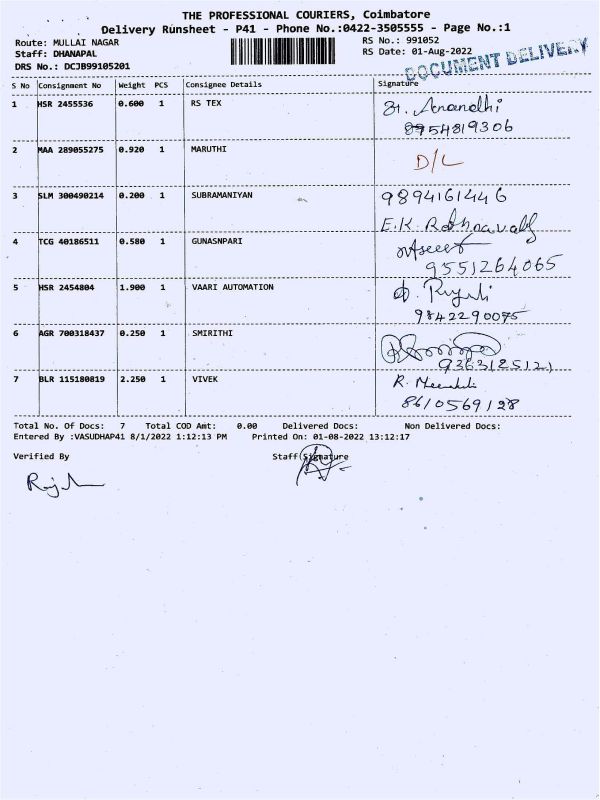 THE PROFESSIONAL COURIERS, Coimbatore
Delivery Runsheet - P41 - Phone No.:0422-3505555 - Page No.:1
Route: MULLAI NAGAR
RS No.: 991052
Staff: DHANAPAL
RS Date: 01-Aug-2022
DRS No.: DCJB99105201
DOCUMENT DELIVERY
S No Consignment No Weight PCS Consignee Details Signature
1 HSR 2455536 0.600 1 RS TEX
Anandhi
8954819306
2 MAA 289055275 0.920 1 MARUTHI
D/L
3 SLM 300490214 0.200 1 SUBRAMANIYAN
9894161446
E.K.
4 TCG 40186511 0.580 1 GUNASNPARI
9551264065
5 HSR 2454804 1.900 1 VAARI AUTOMATION
9842290075
6 AGR 700318437 0.250 1 SMIRITHI
9363125121
7 BLR 115180819 2.250 1 VIVEK
R.
8610569128
Total No. Of Docs: 7 Total COD Amt: 0.00 Delivered Docs: Non Delivered Docs:
Entered By :VASUDHAP41 8/1/2022 1:12:13 PM Printed On: 01-08-2022 13:12:17
Verified By
Staff Signature